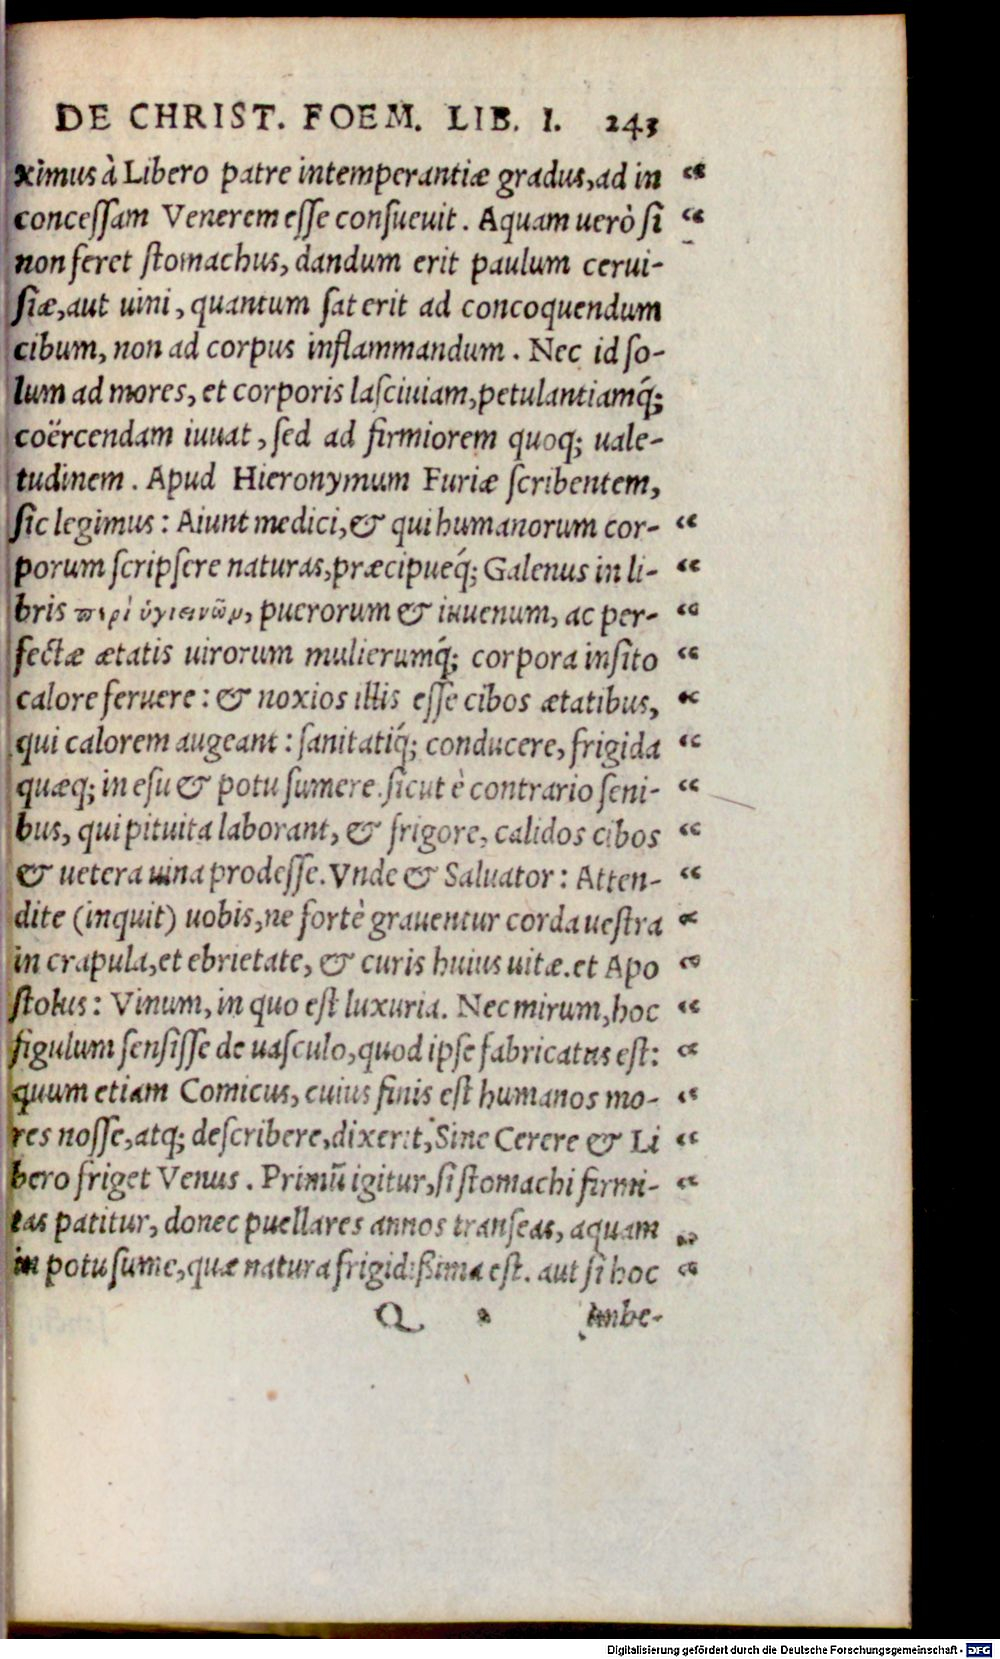 DE CHRIST. FOEM. LIB. I. 243
ximus à Libero patre intemperantiæ gradus, ad in “
concessam Venerem esse consueuit. Aquam uerò si “
non feret stomachus, dandum erit paulum cerui-
siæ, aut uini, quantum sat erit ad concoquendum
cibum, non ad corpus inflammandum. Nec id so-
lum ad mores, et corporis lasciuiam, petulantiamq́;
coërcendam iuuat, sed ad firmiorem quoq; uale-
tudinem. Apud Hieronymum Furiæ scribentem,
sic legimus: Aiunt medici, & qui humanorum cor- “
porum scripsere naturas, præcipueq́; Galenus in li- “
bris περὶ ὑγιεινῶν, puerorum & iuuenum, ac per- “
fectæ ætatis uirorum mulierumq́; corpora insito “
calore feruere: & noxios illis esse cibos ætatibus, “
qui calorem augeant: sanitatiq́; conducere, frigida “
quæq; in esu & potu sumere. sicut è contrario seni- “
bus, qui pituita laborant, & frigore, calidos cibos “
& uetera uina prodesse. Vnde & Saluator: Atten- “
dite (inquit) uobis, ne fortè grauentur corda uestra “
in crapula, et ebrietate, & curis huius uitæ. et Apo “
stolus: Vinum, in quo est luxuria. Nec mirum, hoc “
figulum sensisse de uasculo, quod ipse fabricatus est: “
quum etiam Comicus, cuius finis est humanos mo- “
res nosse, atq; describere, dixerit, Sine Cerere & Li “
bero friget Venus. Primū igitur, si stomachi firmi- “
tas patitur, donec puellares annos transeas, aquam “
in potu sume, quæ natura frigidißima est. aut si hoc “
Q 2 imbe-
Digitalisierung gefördert durch die Deutsche Forschungsgemeinschaft - DFG